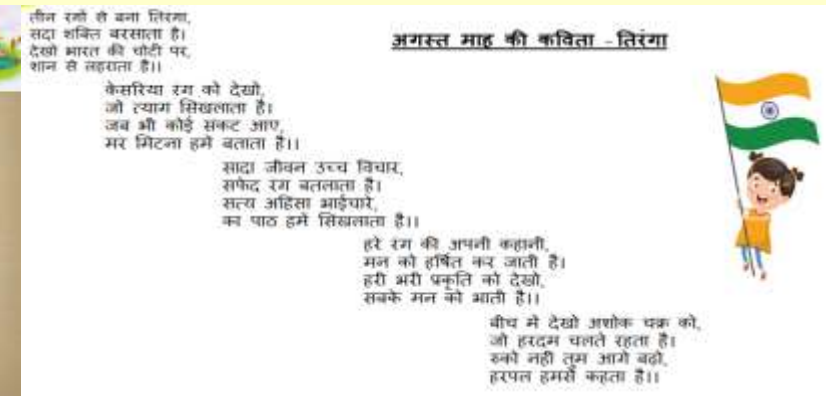 अगस्त माह की कविता - तिरंगा
तीन रगों से बना तिरगा,
सदा शक्ति बरसाता है।
देखो भारत की चोटी पर,
शान से लहराता है।।
केसरिया रग को देखो,
जो त्याग सिखलाता है।
जब भी कोई सकट आए,
मर मिटना हमे बताता है।।
सादा जीवन उच्च विचार,
सफेद रग बतलाता है।
सत्य अहिसा भाईचारे,
का पाठ हमें सिखलाता है।।
हरे रग की अपनी कहानी,
मन को हर्षित कर जाती है।
हरी भरी प्रकृति को देखो,
सबके मन को भाती है।।
बीच मे देखो अशोक चक्र को,
जो हरदम चलते रहता है।
रुको नही तुम आगे बढ़ो,
हरपल हमसे कहता है।।